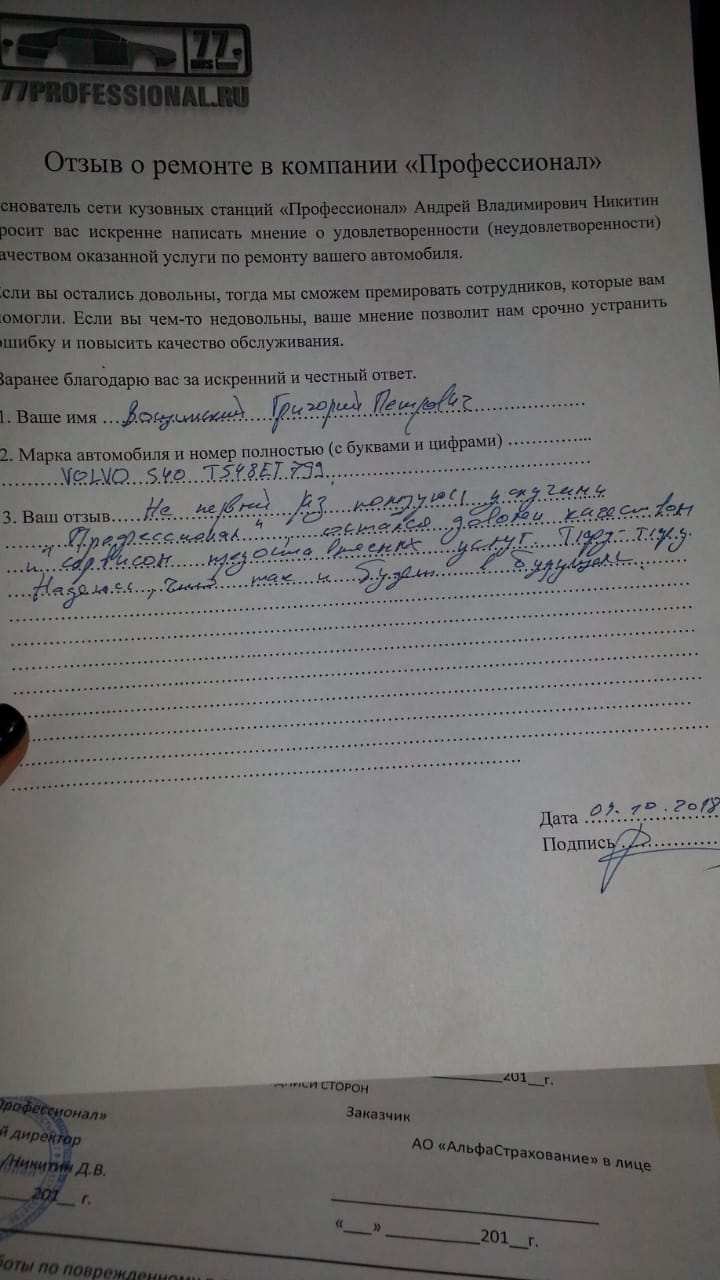 77
77PROFESSIONAL.RU
Отзыв о ремонте в компании «Профессионал»
снователь сети кузовных станций «Профессионал» Андрей Владимирович Никитин
росит вас искренне написать мнение о удовлетворенности (неудовлетворенности)
ачеством оказанной услуги по ремонту вашего автомобиля.
Если вы остались довольны, тогда мы сможем премировать сотрудников, которые вам
помогли. Если вы чем-то недовольны, ваше мнение позволит нам срочно устранить
ошибку и повысить качество обслуживания.
Заранее благодарю вас за искренний и честный ответ.
1. Ваше имя ... Григорий Петрович
2. Марка автомобиля и номер полностью (с буквами и цифрами) ...............
VOLVO S40 T548ET799
3. Ваш отзыв..... Не первый раз пользуюсь услугами
"Профессионал", остался доволен качеством
и сервисом предоставленных услуг.
Надеюсь, что так и будет в будущем.
Дата .10.2018
Подпись
ПИСИ СТОРОН
_201__г.
Профессионал»
Заказчик
й директор
АО «АльфаСтрахование» в лице
/Никитин Д.В.
201__ г.
«___» __________201__г.
боты по поврежденному